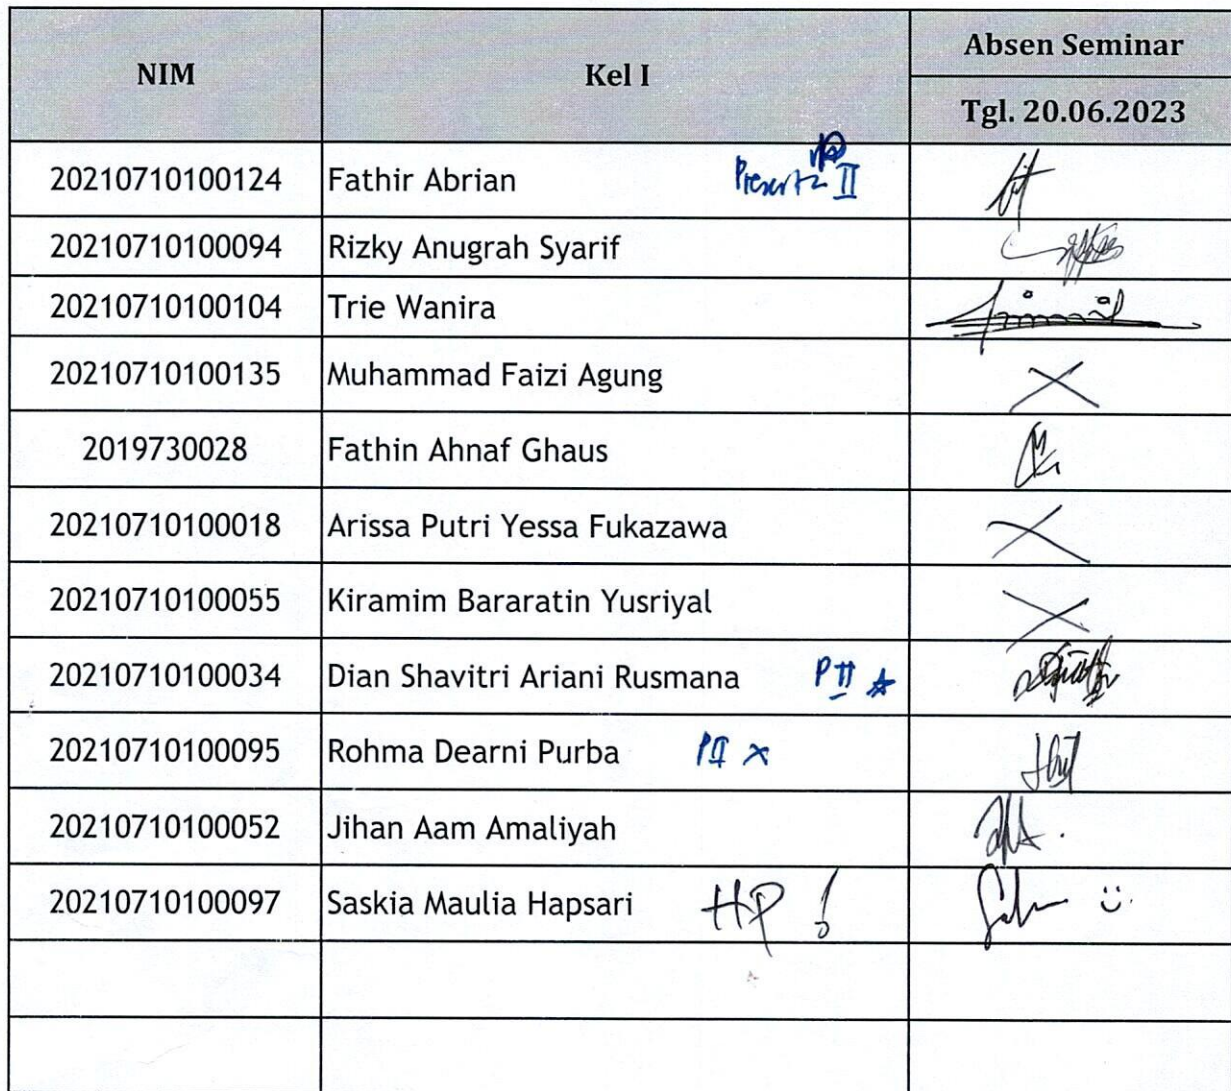 NIM Kel I Absen Seminar
Tgl. 20.06.2023
20210710100124 Fathir Abrian II
20210710100094 Rizky Anugrah Syarif
20210710100104 Trie Wanira
20210710100135 Muhammad Faizi Agung X
2019730028 Fathin Ahnaf Ghaus
20210710100018 Arissa Putri Yessa Fukazawa X
20210710100055 Kiramim Bararatin Yusriyal X
20210710100034 Dian Shavitri Ariani Rusmana P II
20210710100095 Rohma Dearni Purba P II X
20210710100052 Jihan Aam Amaliyah
20210710100097 Saskia Maulia Hapsari HP !